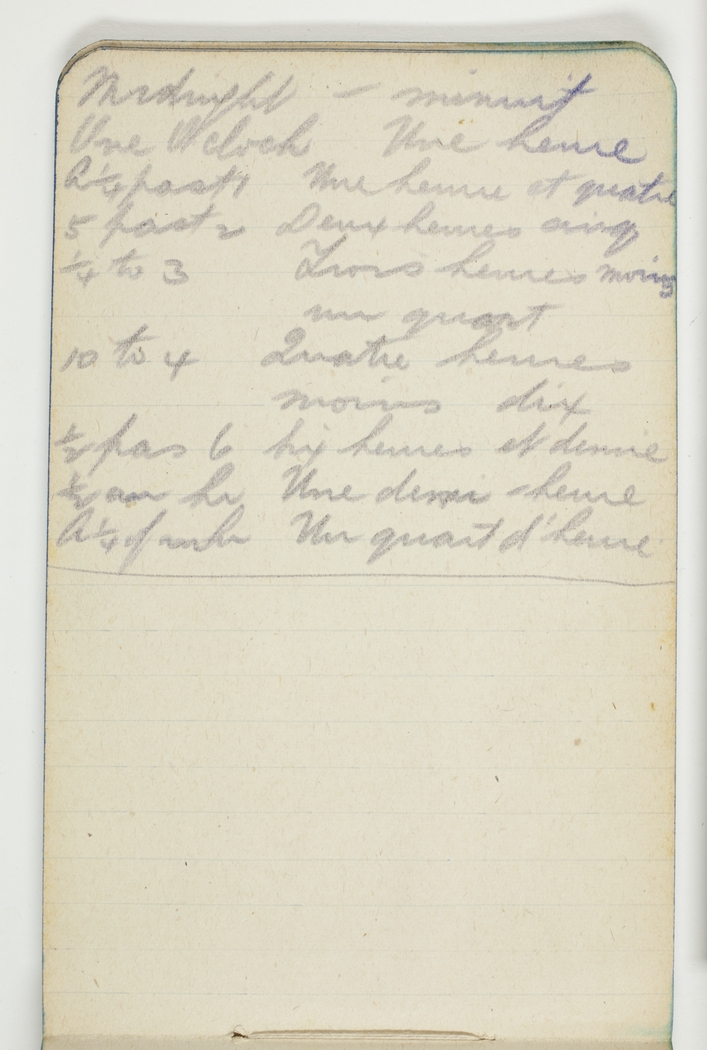 Midnight - minuit
One O'clock Une heure
A ¼ past 1 Une heure et quatre
5 past 2 Deux heures cinq
¼ to 3 Trois heures moins
un quart
10 to 4 Quatre heures
moins dix
½ pas 6 Six heures et demie
½ an hr Une demi-heure
A ¼ of an hr Un quart d'heure